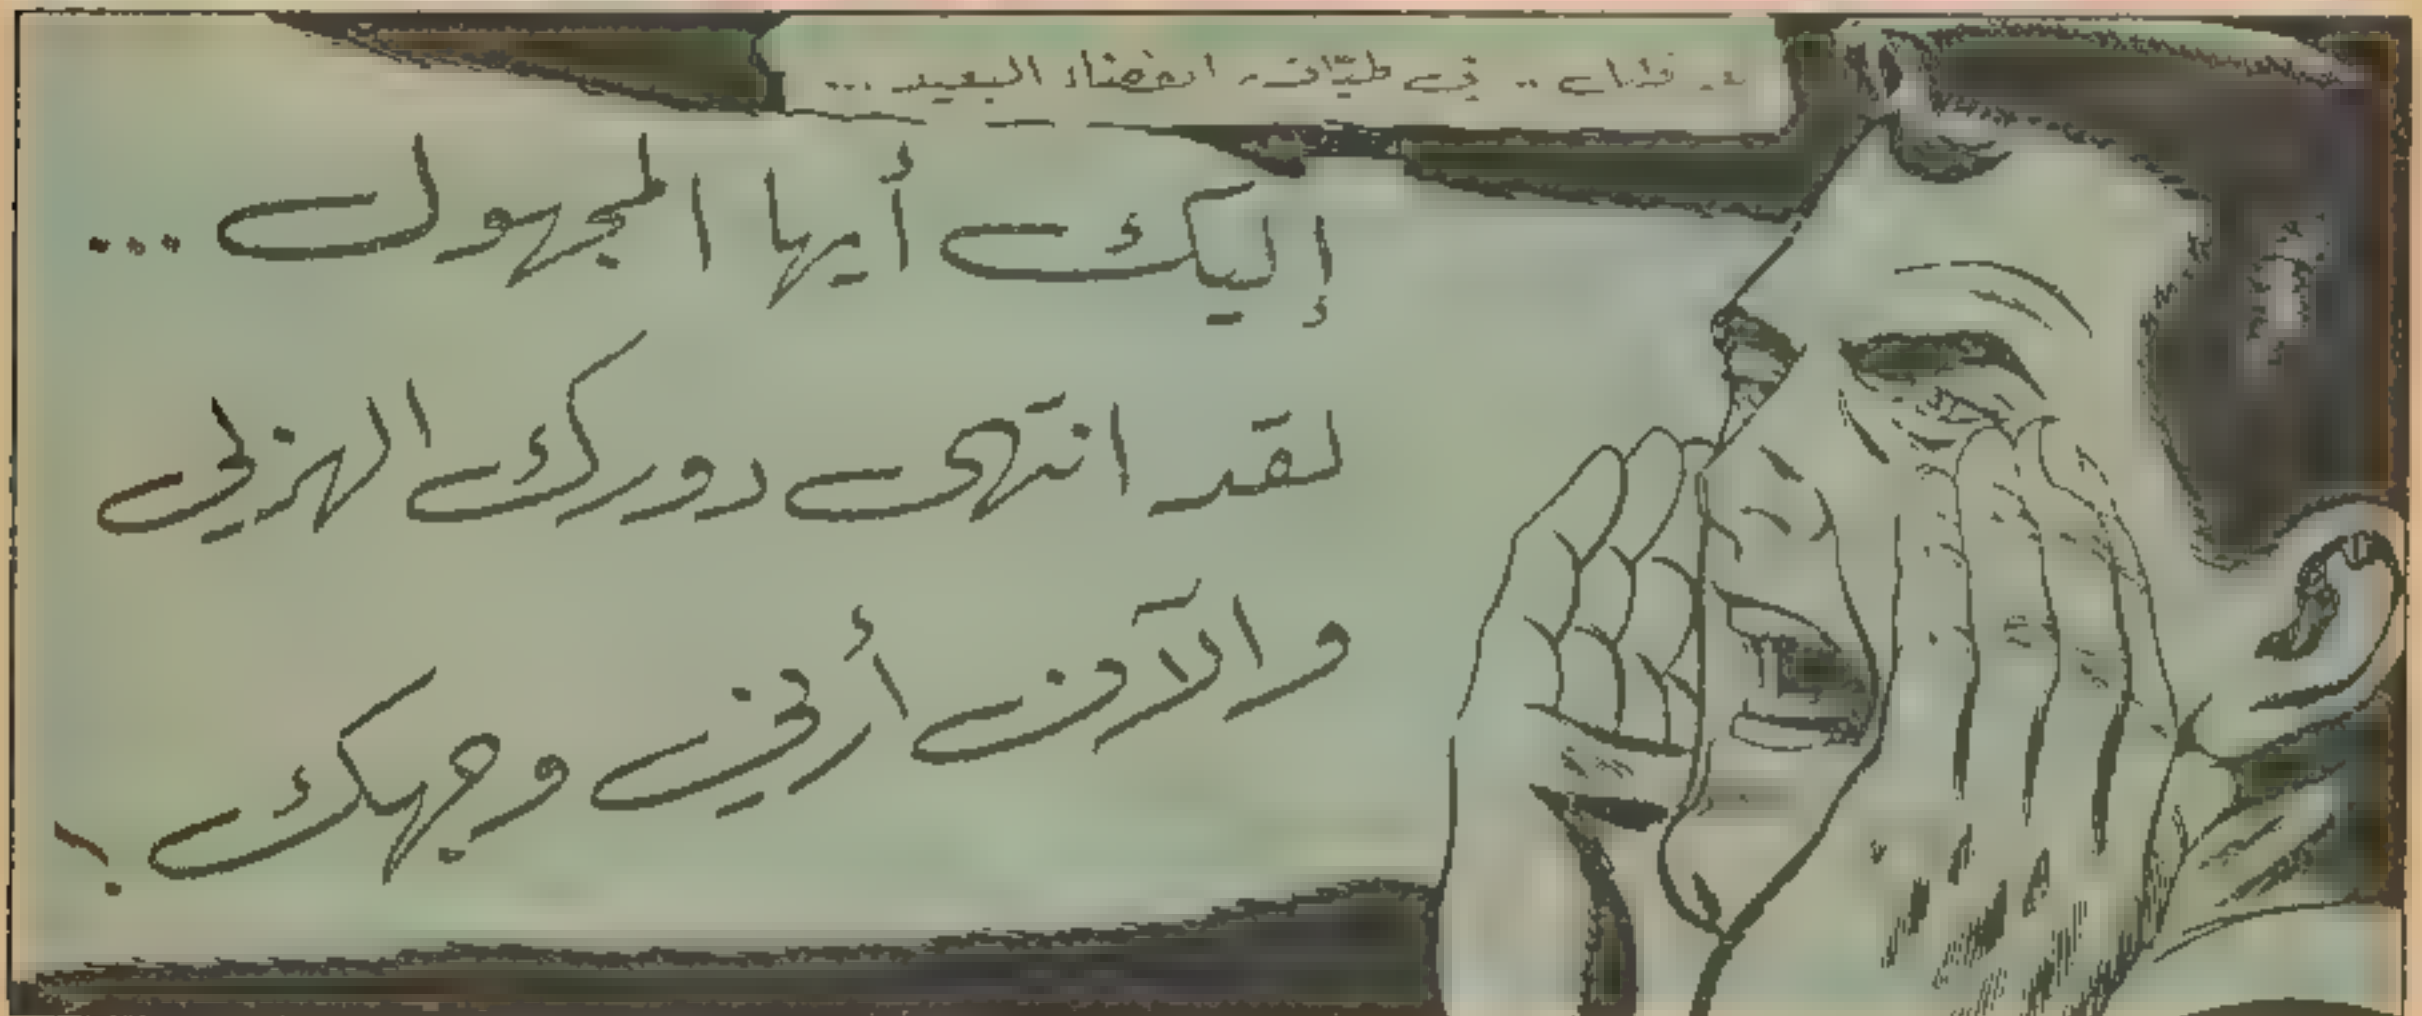 .. في طيّات الفضاء البعيد ...
إليك أيها المجهول ...
لقد انتهى دورك الهزلي
والآن أرني وجهك !